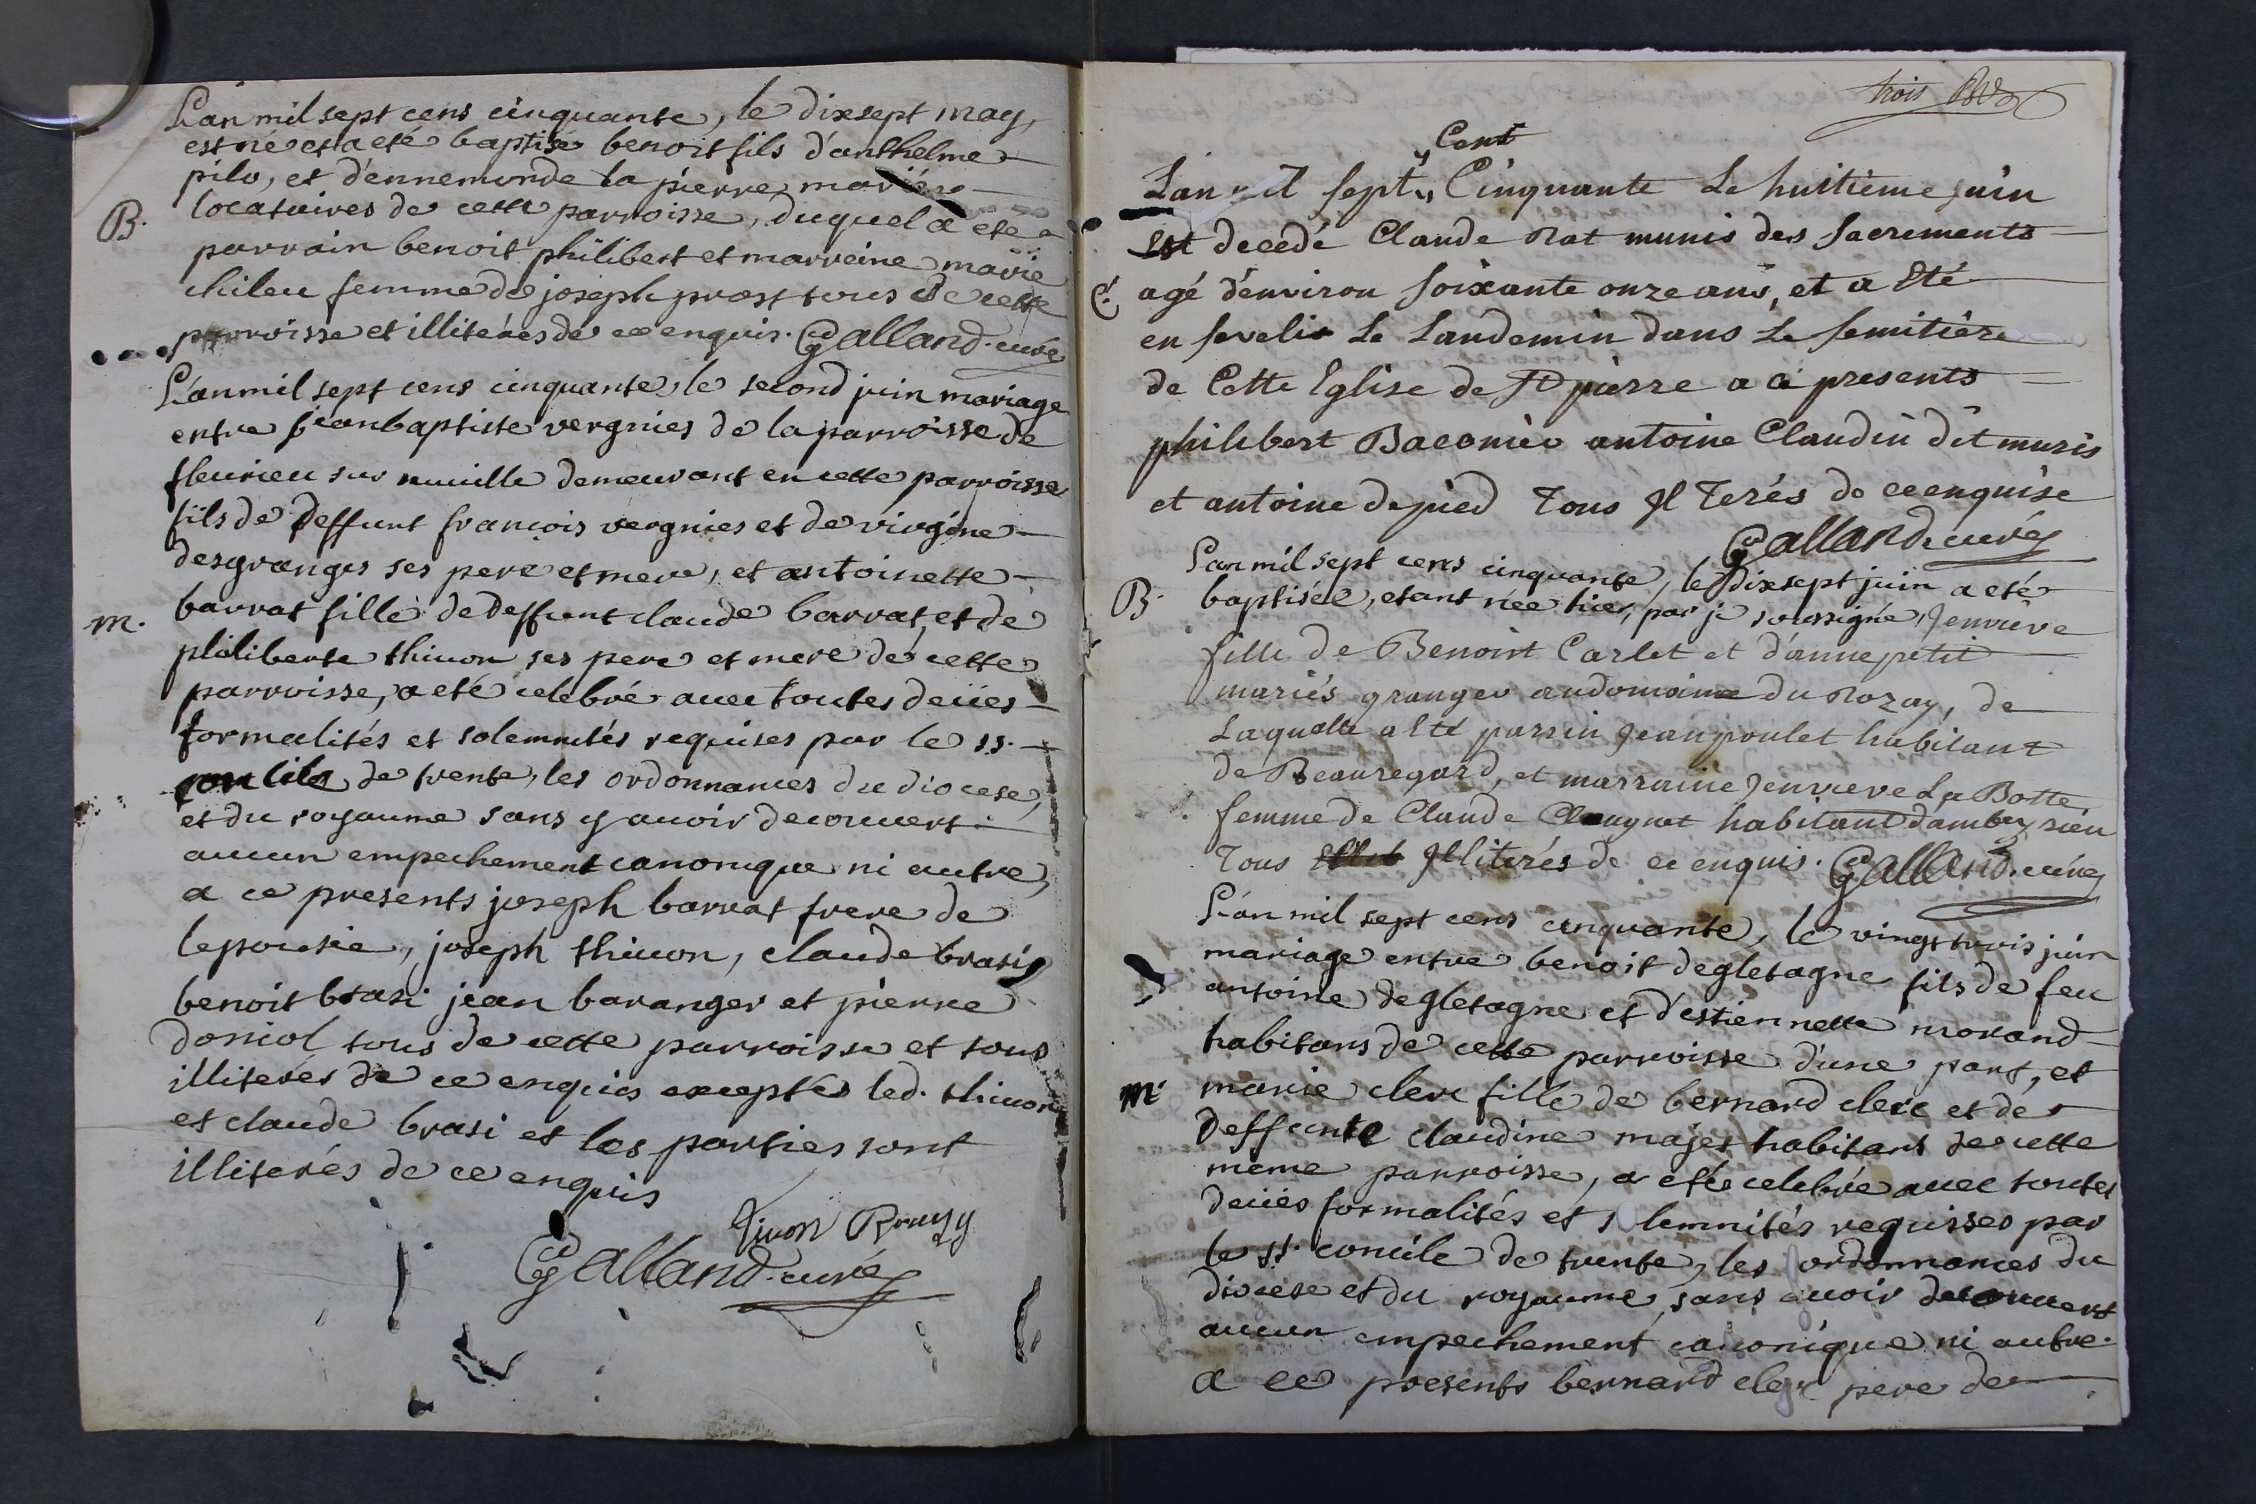 L'an mil sept cens cinquante, le dixsept may,
est né et a eté baptisé benoit fils d'anthelme
pilo, et d'ennemonde la pierre mariés
locataires de cette parroisse, duquel a eté
B.
parrain benoit philibert et marreine marie
chileu femme de joseph prost tous de cette
parroisse et illiterés de ce enquis. Galland curé
L'an mil sept cens cinquante, le second juin mariage
entre jeanbaptiste vergnies de la parroisse de
fleurieu sur demeurant en cette parroisse
fils de deffunt francois vergnies et de virgine
desgranges ses pere et mere, et antoinette
m.
barrat fille de deffunt claude barrat, et de
philiberte thiuon ses pere et mere de cette
parroisse, a eté celebré avec toutes deües
formalités et solemnités requises par le ss.
concile de trente, les ordonnances du diocese,
et du royaume sans y avoir decouvert
aucun empechement canonique ni autre,
a ce presents joseph barrat frere de
lepousée, joseph thiuon, claude brasi,
benoit brasi jean baranger et pierre
doniol tous de cette parroisse et tous
illiterés de ce enquis exceptés led. thiuon
et claude brasi et les parties sont
illiterés de ce enquis
Galland curé
trois
Cent
L'an mil sept Cinquante Le huitieme juin
Est decedé Claude Rat munis des sacrements
agé d'environ soixante onze ans, et a Eté
en seveli Le Landemin dans Le semitière
de Cette Eglise de St pierre a cé presents
philibert antoine Claudin dit muris
et antoine depied Tous Il Terés de ce enquise
Galland curé
L'an mil sept cens cinquante, le dixsept juin a eté
B.
baptisée, etant née hier, par je soussigné, Jenvieve
fille de Benoist Carlet et d'anne petit
mariés granger audomaine du Rozay, de
Laquelle a Eté parrin Jean poulet habitant
de Beauregard, et marraine Jenvieve La Botte,
femme de Claude habitant dambeyrieu
Tous Illiterés de ce enquis. Galland curé
L'an mil sept cens cinquante, le vingt trois juin
mariage entre benoit degletagne fils de feu
antoine degletagne et d'estiennette morand
habitans de cette parroisse d'une part, et
m.
marie clerc fille de bernard clerc et de
deffunte claudine majet habitans de cette
meme parroisse, a eté celebré avec toutes
deües formalités et solemnités requisses par
le st. concile de trente, les ordonnances du
diocese et du royaume, sans avoir decouvert
aucun empechement canonique ni autre.
a ce presents bernard clerc pere de